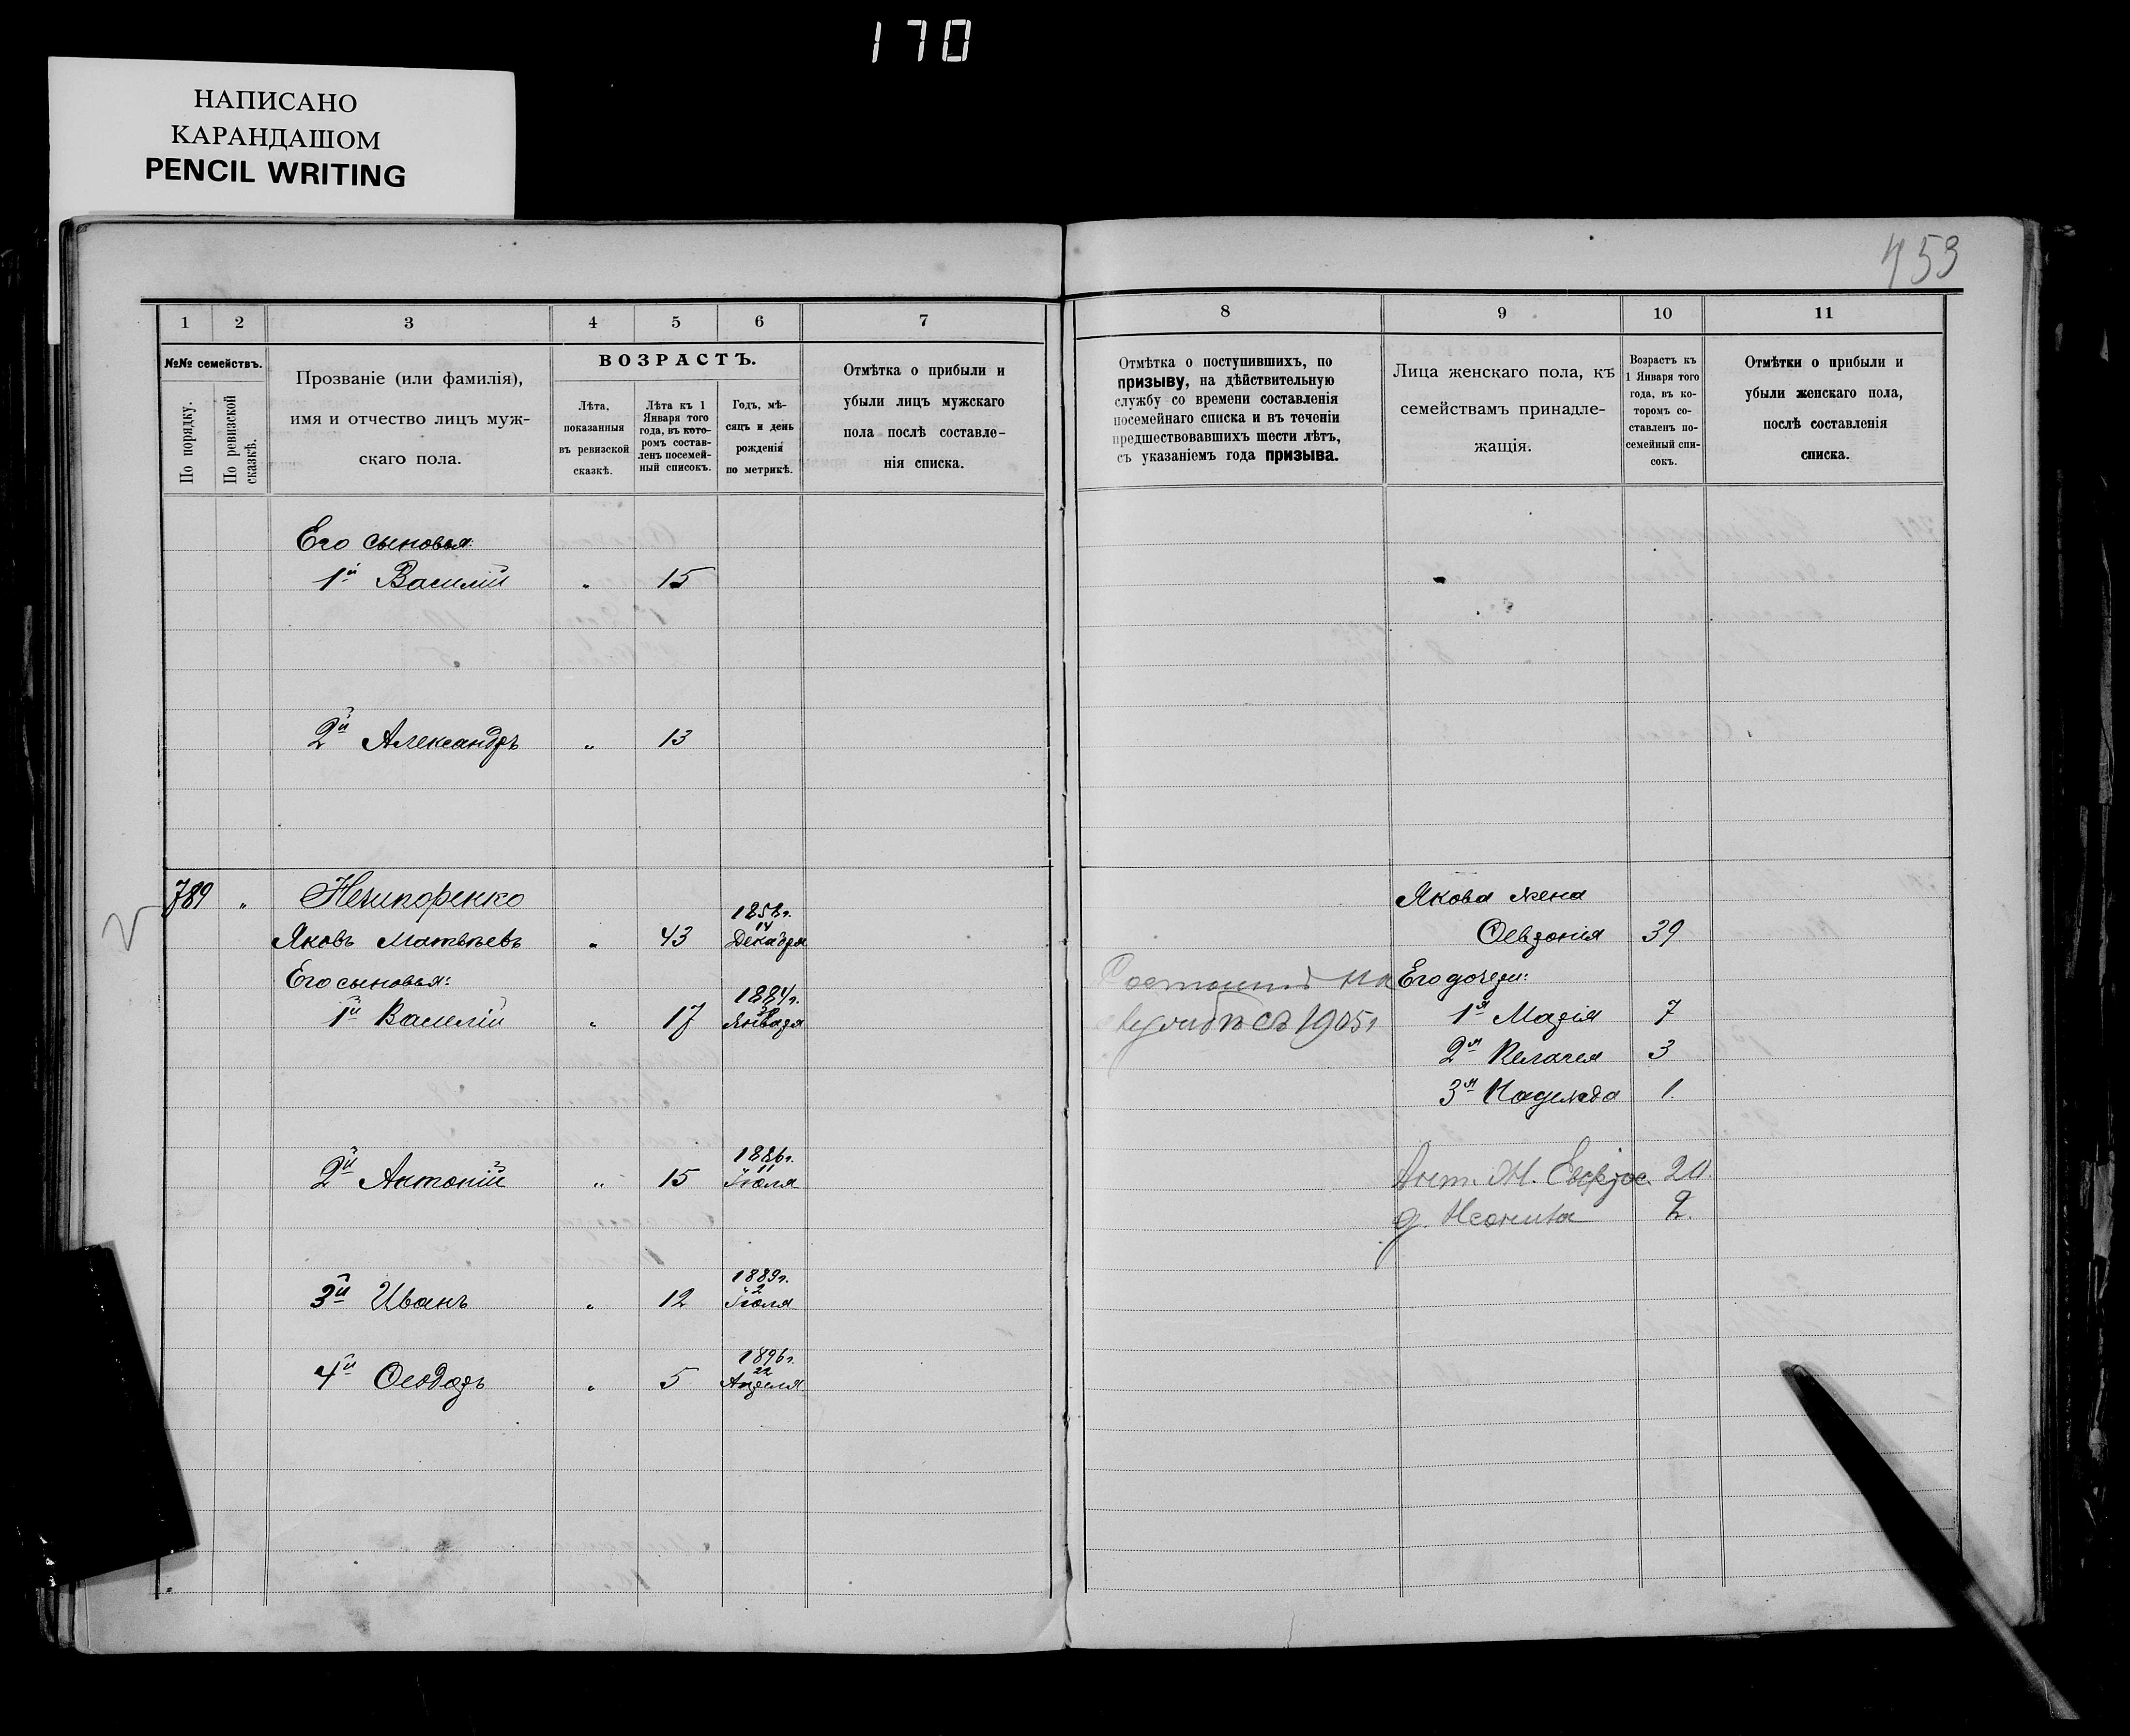 170
НАПИСАНО
КАРАНДАШОМ
PENCIL WRITING
453
1 2 3 4 5 6 7
№№ семействъ.
По порядку.
По ревизской сказкѣ.
Прозваніе (или фамилія),
имя и отчество лицъ муж-
скаго пола.
ВОЗРАСТЪ.
Лѣта,
показанныя
въ ревизской
сказкѣ.
Лѣта къ 1
Января того
года, въ кото-
ромъ состав-
ленъ посемей-
ный списокъ.
Годъ, мѣ-
сяцъ и день
рожденія
по метрикѣ.
Отмѣтка о прибыли и
убыли лицъ мужскаго
пола послѣ составле-
нія списка.
Его сыновья:
1й Василій " 15
2й Александръ " 13
789 " Нечипоренко
Яковъ Матвѣевъ " 43 1858г. 14 Декабря
Его сыновья:
1й Василій " 17 1884г. Января
2й Антоній " 15 1886г. 11 Іюля
3й Иванъ " 12 1889г. 2 Іюля
4й Ѳеодоръ " 5 1896г. 22 Апреля
8 9 10 11
Отмѣтка о поступившихъ, по
призыву, на дѣйствительную
службу со времени составленія
посемейнаго списка и въ теченіи
предшествовавшихъ шести лѣтъ,
съ указаніемъ года призыва.
Лица женскаго пола, къ
семействамъ принадле-
жащія.
Возрастъ къ
1 Января того
года, въ ко-
торомъ со-
ставленъ по-
семейный спи-
сокъ.
Отмѣтки о прибыли и
убыли женскаго пола,
послѣ составленія
списка.
Якова жена
Ѳевронія 39
Его дочери:
1я Марія 7
на
съ 1905г
2я Пелагея 3
3я Надежда 1.
Ант. ж. Евфрос. 20.
д. 2.